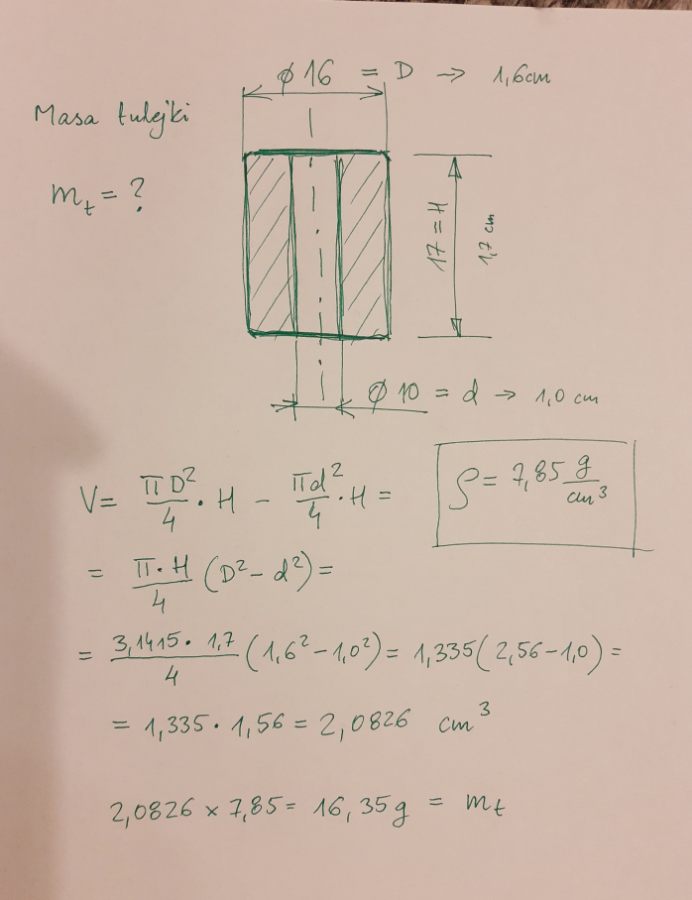 ϕ16 = D → 1,6cm
Masa tulejki
m_t = ?
17 = H
1,7 cm
ϕ10 = d → 1,0 cm
V = πD²/4 · H − πd²/4 · H =
ρ = 7,85 g/cm³
= π·H/4 (D² − d²) =
= 3,1415 · 1,7/4 (1,6² − 1,0²) = 1,335(2,56 − 1,0) =
= 1,335 · 1,56 = 2,0826 cm³
2,0826 × 7,85 = 16,35g = m_t